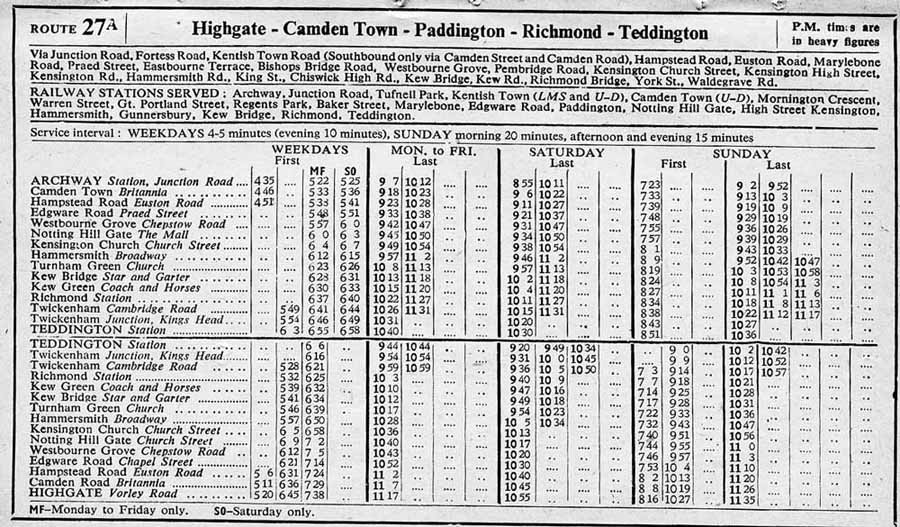 ROUTE 27A
Highgate - Camden Town - Paddington - Richmond - Teddington
P.M. times are
in heavy figures
Via Junction Road, Fortess Road, Kentish Town Road (Southbound only via Camden Street and Camden Road), Hampstead Road, Euston Road, Marylebone
Road, Praed Street, Eastbourne Terrace, Bishops Bridge Road, Westbourne Grove, Pembridge Road, Kensington Church Street, Kensington High Street,
Kensington Rd., Hammersmith Rd., King St., Chiswick High Rd., Kew Bridge, Kew Rd., Richmond Bridge, York St., Waldegrave Rd.
RAILWAY STATIONS SERVED : Archway, Junction Road, Tufnell Park, Kentish Town (LMS and U-D), Camden Town (U-D), Mornington Crescent,
Warren Street, Gt. Portland Street, Regents Park, Baker Street, Marylebone, Edgware Road, Paddington, Notting Hill Gate, High Street Kensington,
Hammersmith, Gunnersbury, Kew Bridge, Richmond, Teddington.
Service interval : WEEKDAYS 4-5 minutes (evening 10 minutes), SUNDAY morning 20 minutes, afternoon and evening 15 minutes
WEEKDAYS MON. to FRI. SATURDAY SUNDAY
First Last Last First Last
MF SO
ARCHWAY Station, Junction Road .... 4 35 .... 5 22 5 25 9 7 10 12 8 55 10 11 7 23 9 2 9 52
Camden Town Britannia 4 46 5 33 5 36 9 18 10 23 9 6 10 22 7 33 9 13 10 3
Hampstead Road Euston Road 4 51 5 38 5 41 9 23 10 28 9 11 10 27 7 39 9 19 10 9
Edgware Road Praed Street 5 48 5 51 9 33 10 38 9 21 10 37 7 48 9 29 10 19
Westbourne Grove Chepstow Road 5 57 6 0 9 42 10 47 9 31 10 47 7 55 9 36 10 26
Notting Hill Gate The Mall 6 0 6 3 9 45 10 50 9 34 10 50 7 57 9 39 10 29
Kensington Church Church Street 6 4 6 7 9 49 10 54 9 38 10 54 8 1 9 43 10 33
Hammersmith Broadway 6 12 6 15 9 57 11 2 9 46 11 2 8 9 9 52 10 42 10 47
Turnham Green Church 6 23 6 26 10 8 11 13 9 57 11 13 8 19 10 3 10 53 10 58
Kew Bridge Star and Garter 6 28 6 31 10 13 11 18 10 2 11 18 8 24 10 8 10 54 11 3
Kew Green Coach and Horses 6 30 6 33 10 15 11 20 10 4 11 20 8 27 10 11 11 1 11 6
Richmond Station 6 37 6 40 10 22 11 27 10 11 11 27 8 34 10 18 11 8 11 13
Twickenham Cambridge Road 5 49 6 41 6 44 10 26 11 31 10 15 11 31 8 38 10 22 11 12 11 17
Twickenham Junction, Kings Head 5 54 6 46 6 49 10 31 10 20 8 43 10 27
TEDDINGTON Station 6 3 6 55 6 58 10 40 10 30 8 51 10 36
TEDDINGTON Station 6 6 9 44 10 44 9 20 9 49 10 34 9 0 10 2 10 42
Twickenham Junction, Kings Head 6 16 9 54 10 54 9 31 10 0 10 45 9 9 10 12 10 52
Twickenham Cambridge Road 5 28 6 21 9 59 10 59 9 36 10 5 10 50 7 3 9 14 10 17 10 57
Richmond Station 5 32 6 25 10 3 9 40 10 9 7 7 9 18 10 21
Kew Green Coach and Horses 5 39 6 32 10 10 9 47 10 16 7 14 9 25 10 28
Kew Bridge Star and Garter 5 41 6 34 10 12 9 49 10 18 7 17 9 28 10 31
Turnham Green Church 5 46 6 39 10 17 9 54 10 23 7 22 9 33 10 36
Hammersmith Broadway 5 57 6 50 10 28 10 5 10 34 7 32 9 43 10 47
Kensington Church Church Street 6 5 6 58 10 36 10 13 7 40 9 51 10 56
Notting Hill Gate Church Street 6 9 7 2 10 40 10 17 7 44 9 55 11 0
Westbourne Grove Chepstow Road 6 12 7 5 10 43 10 20 7 46 9 57 11 3
Edgware Road Chapel Street 6 21 7 14 10 52 10 30 7 53 10 4 11 10
Hampstead Road Euston Road 5 6 6 31 7 24 11 2 10 40 8 2 10 13 11 20
Camden Road Britannia 5 11 6 36 7 29 11 7 10 45 8 8 10 19 11 26
HIGHGATE Vorley Road 5 20 6 45 7 38 11 17 10 55 8 16 10 27 11 35
MF-Monday to Friday only. SO-Saturday only.